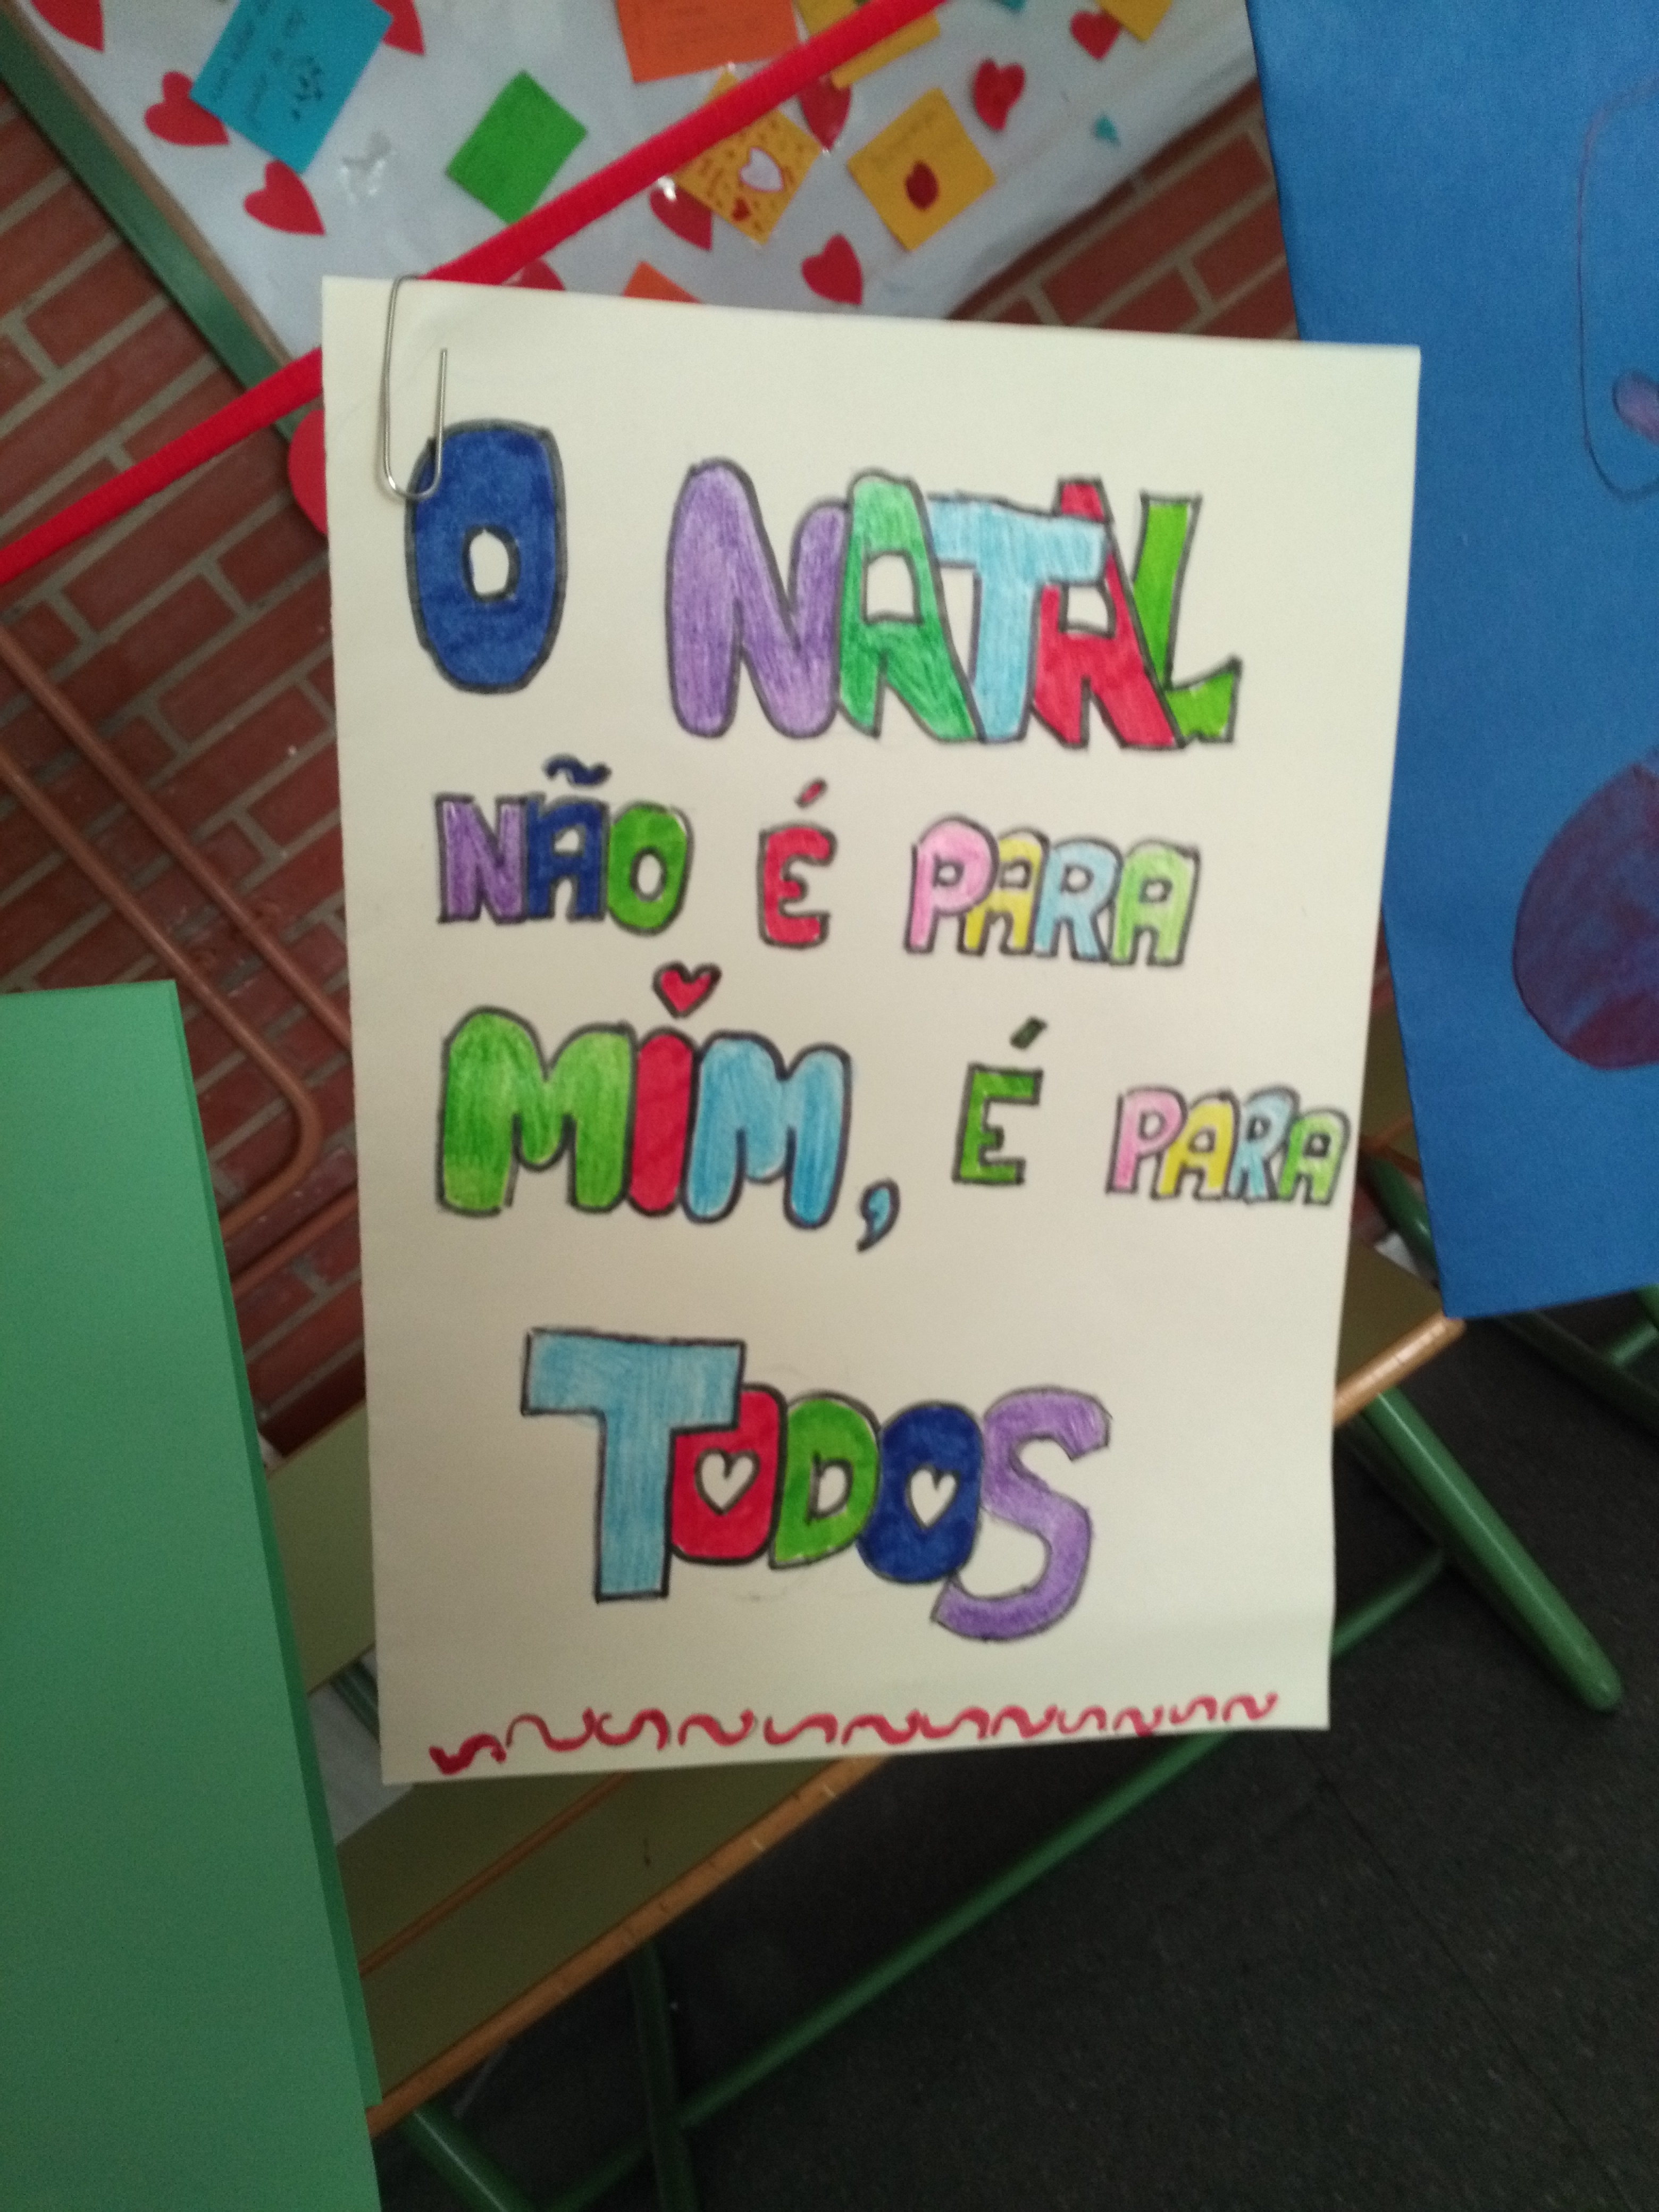 O NATAL
NÃO É PARA
MIM, É PARA
TODOS